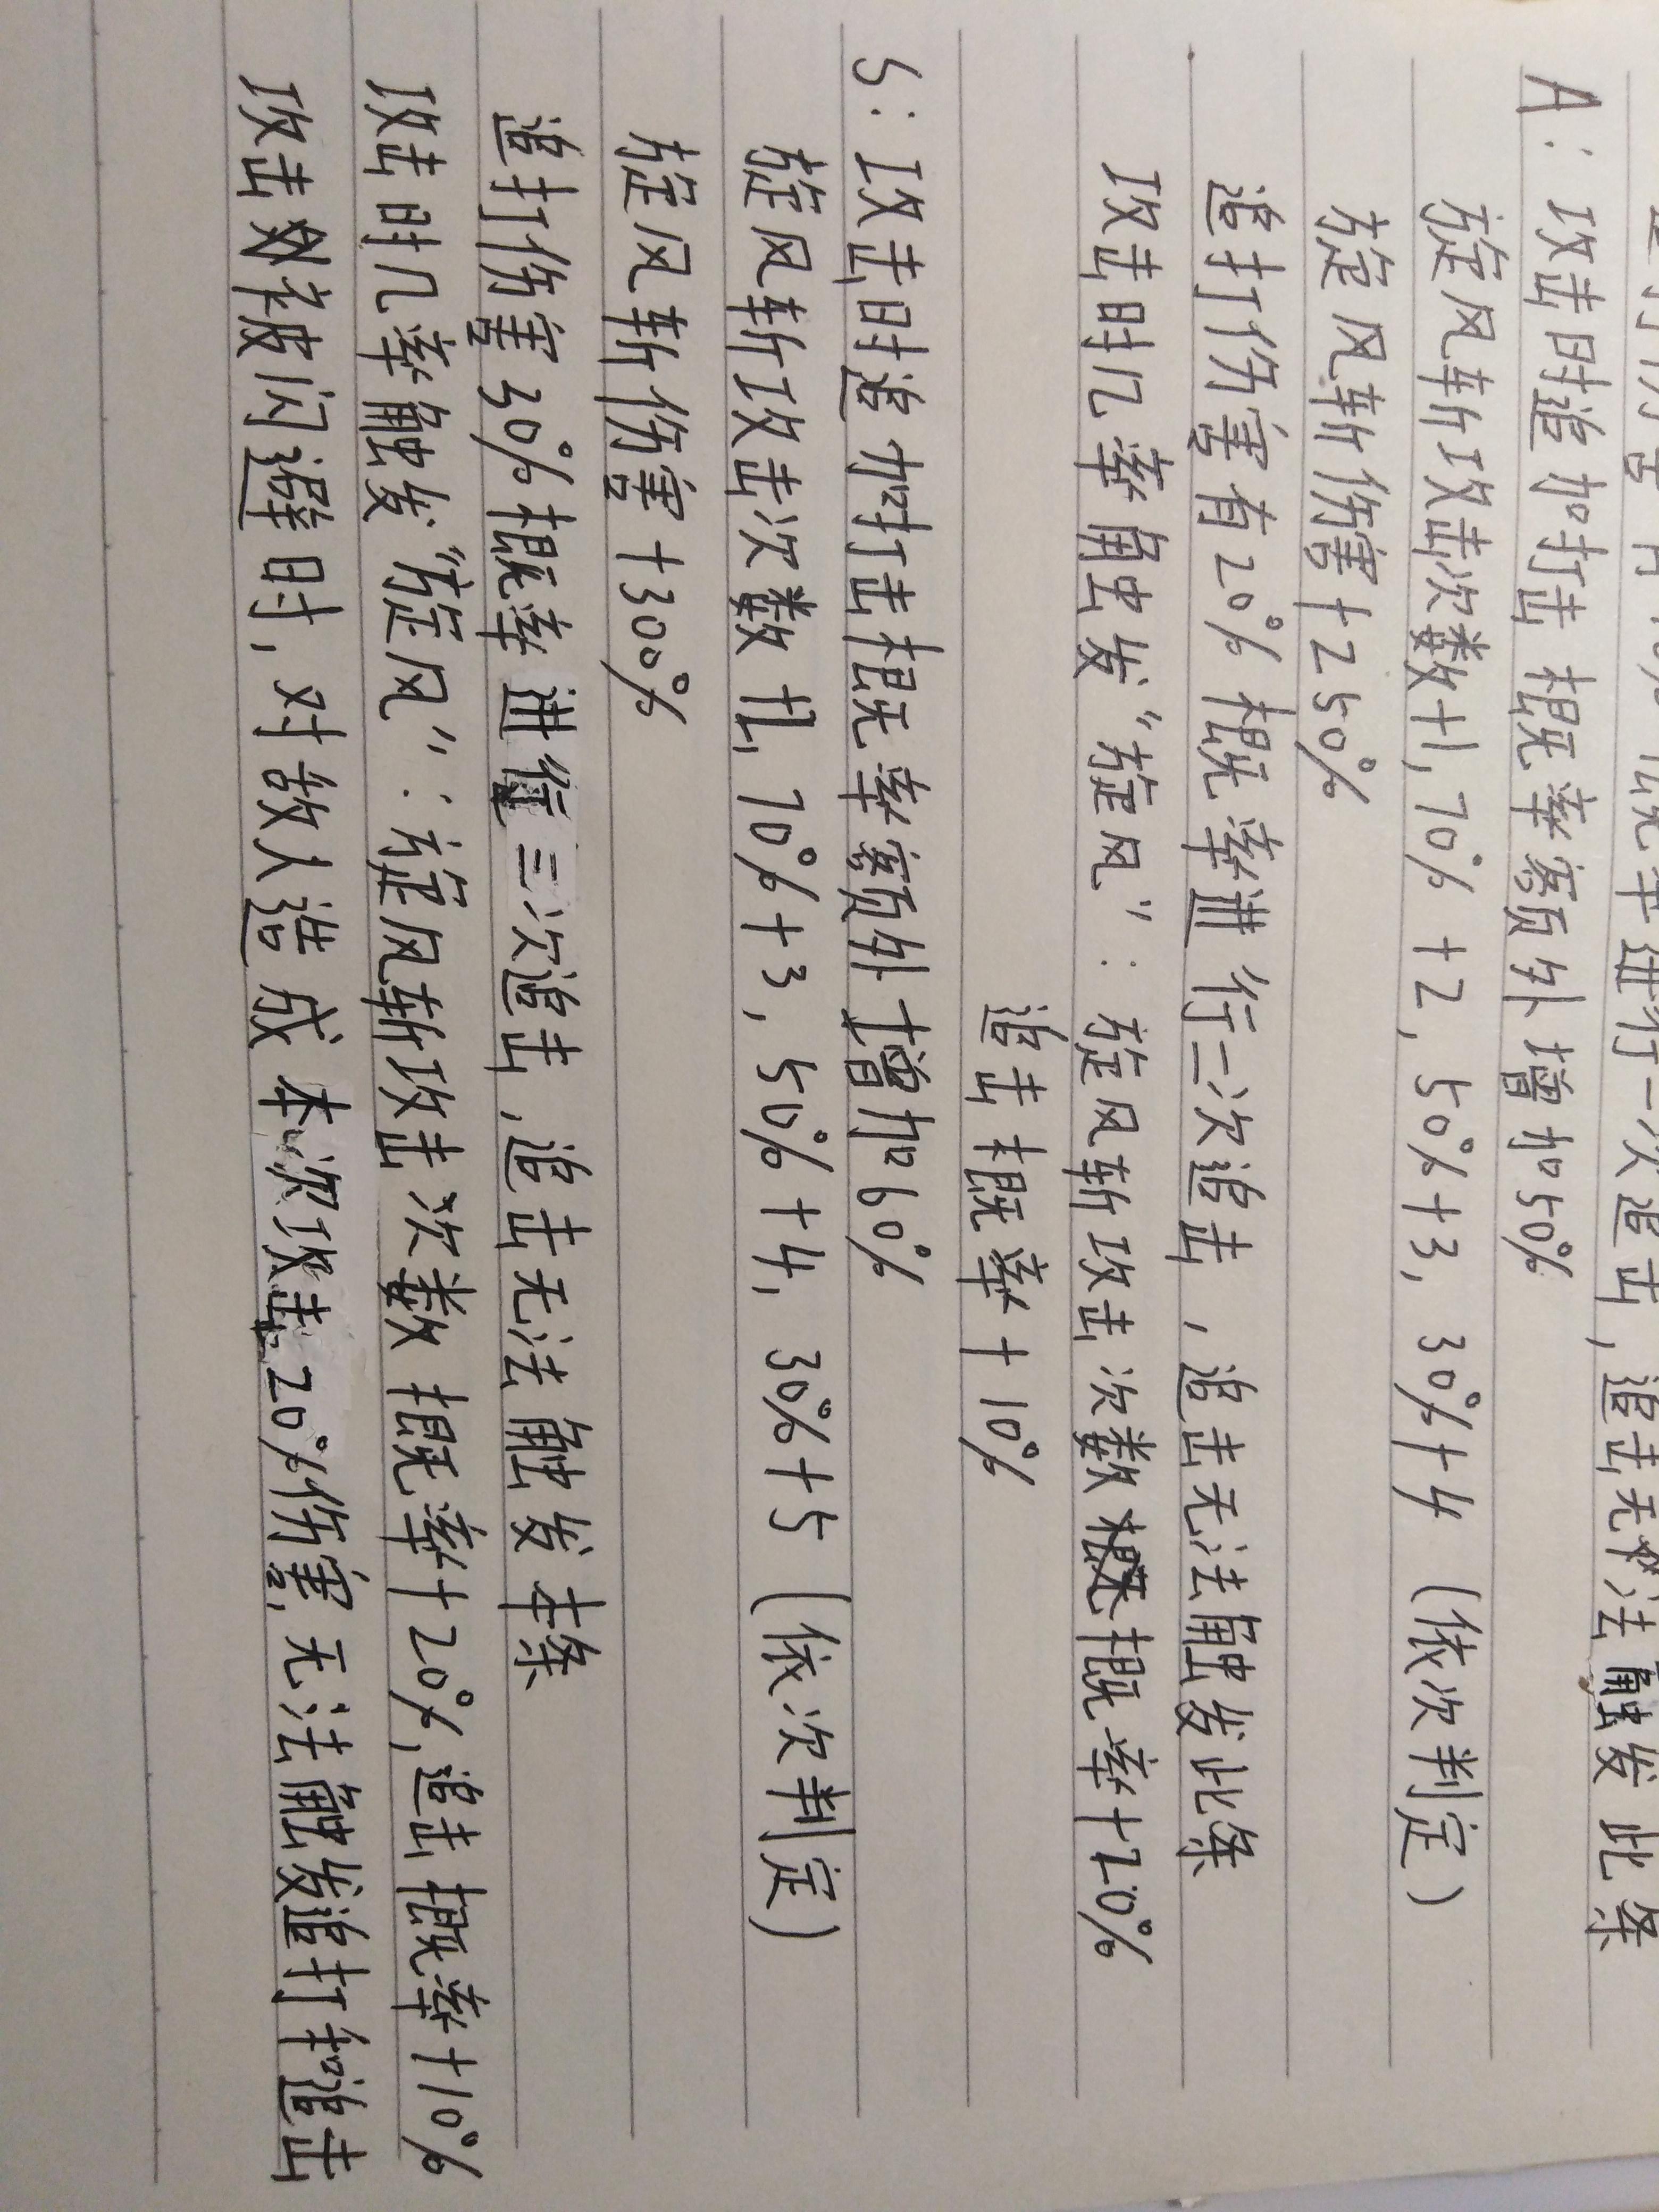 进行一次追击,追击无法触发此条
A:攻击时追加打击概率额外增加50%
旋风斩攻击次数+1,70%+2,50%+3,30%+4(依次判定)
旋风斩伤害+250%
追打伤害有20%概率进行二次追击,追击无法触发此条
攻击时几率触发“旋风”:旋风斩攻击次数概率+20%
追击概率+10%
S:攻击时追加打击概率额外增加60%
旋风斩攻击次数+1,70%+3,50%+4,30%+5(依次判定)
旋风斩伤害+300%
追打伤害30%概率进行三次追击,追击无法触发本条
攻击时几率触发“旋风”:旋风斩攻击次数概率+20%,追击概率+10%
攻击被闪避时,对敌人造成本次攻击20%伤害,无法触发追打和追击